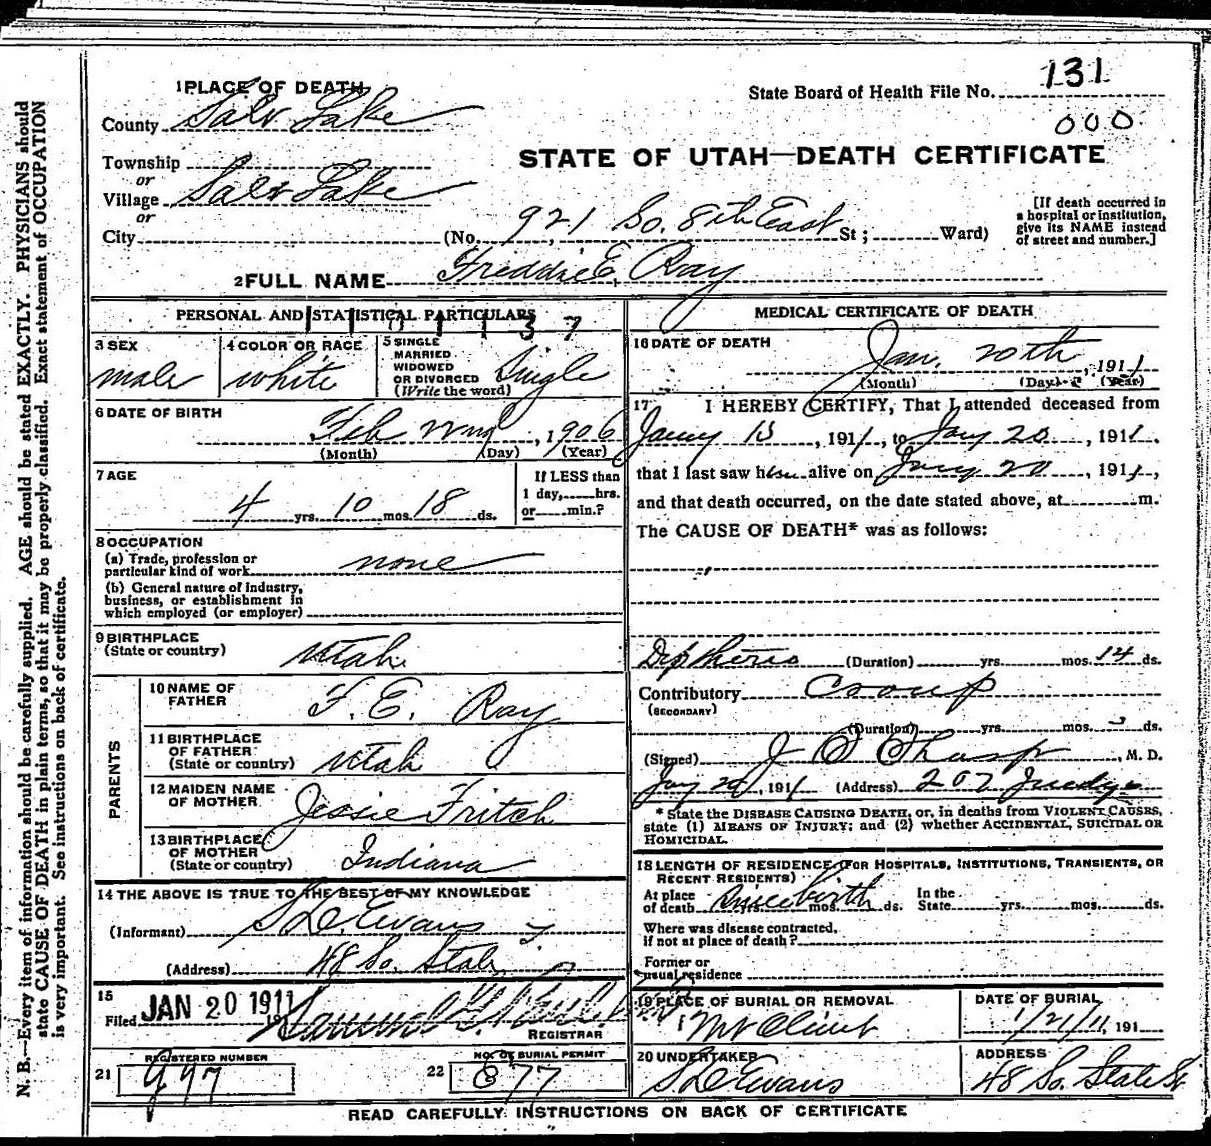 N. B.—Every item of information should be carefully supplied. AGE should be stated EXACTLY. PHYSICIANS should
state CAUSE OF DEATH in plain terms, so that it may be properly classified. Exact statement of OCCUPATION
is very important. See instructions on back of certificate.
1 PLACE OF DEATH
State Board of Health File No. 131
000
County Salt Lake
STATE OF UTAH—DEATH CERTIFICATE
Township
or
Village Salt Lake
or
City (No. 921 So. 8th East St; Ward)
[If death occurred in
a hospital or institution,
give its NAME instead
of street and number.]
2 FULL NAME Freddie E. Ray
PERSONAL AND STATISTICAL PARTICULARS
3 SEX
male
4 COLOR OR RACE
white
5 SINGLE
MARRIED
WIDOWED
OR DIVORCED
(Write the word)
Single
6 DATE OF BIRTH
Feb 2nd, 1906
(Month) (Day) (Year)
7 AGE
4 yrs. 10 mos. 18 ds.
If LESS than
1 day, hrs.
or min.?
8 OCCUPATION
(a) Trade, profession or
particular kind of work none
(b) General nature of industry,
business, or establishment in
which employed (or employer)
9 BIRTHPLACE
(State or country) Utah
PARENTS
10 NAME OF
FATHER F. E. Ray
11 BIRTHPLACE
OF FATHER
(State or country) Utah
12 MAIDEN NAME
OF MOTHER Jessie Fritch
13 BIRTHPLACE
OF MOTHER
(State or country) Indiana
14 THE ABOVE IS TRUE TO THE BEST OF MY KNOWLEDGE
(Informant) S. D. Evans
(Address) 48 So. State
15
Filed JAN 20 1911
REGISTRAR
REGISTERED NUMBER
21 997
NO. OF BURIAL PERMIT
22 877
MEDICAL CERTIFICATE OF DEATH
16 DATE OF DEATH
Jan. 20th, 1911
(Month) (Day) (Year)
17 I HEREBY CERTIFY, That I attended deceased from
1911, to Jany 20, 1911.
that I last saw him alive on Jany 20, 1911,
and that death occurred, on the date stated above, at m.
The CAUSE OF DEATH* was as follows:
Diptheria (Duration) yrs. mos. 14 ds.
Contributory Croup
(SECONDARY)
(Duration) yrs. mos. ds.
(Signed) J S Sharp, M. D.
Jany 20, 1911 (Address) 207 Judge
* State the DISEASE CAUSING DEATH, or, in deaths from VIOLENT CAUSES,
state (1) MEANS OF INJURY; and (2) whether ACCIDENTAL, SUICIDAL OR
HOMICIDAL.
18 LENGTH OF RESIDENCE (FOR HOSPITALS, INSTITUTIONS, TRANSIENTS, OR
RECENT RESIDENTS)
At place
of death since birth yrs. mos. ds.
In the
State yrs. mos. ds.
Where was disease contracted,
if not at place of death?
Former or
usual residence
19 PLACE OF BURIAL OR REMOVAL
Mt Olivet
DATE OF BURIAL
1/21/11, 191
20 UNDERTAKER
S. D. Evans
ADDRESS
48 So. State St
READ CAREFULLY INSTRUCTIONS ON BACK OF CERTIFICATE